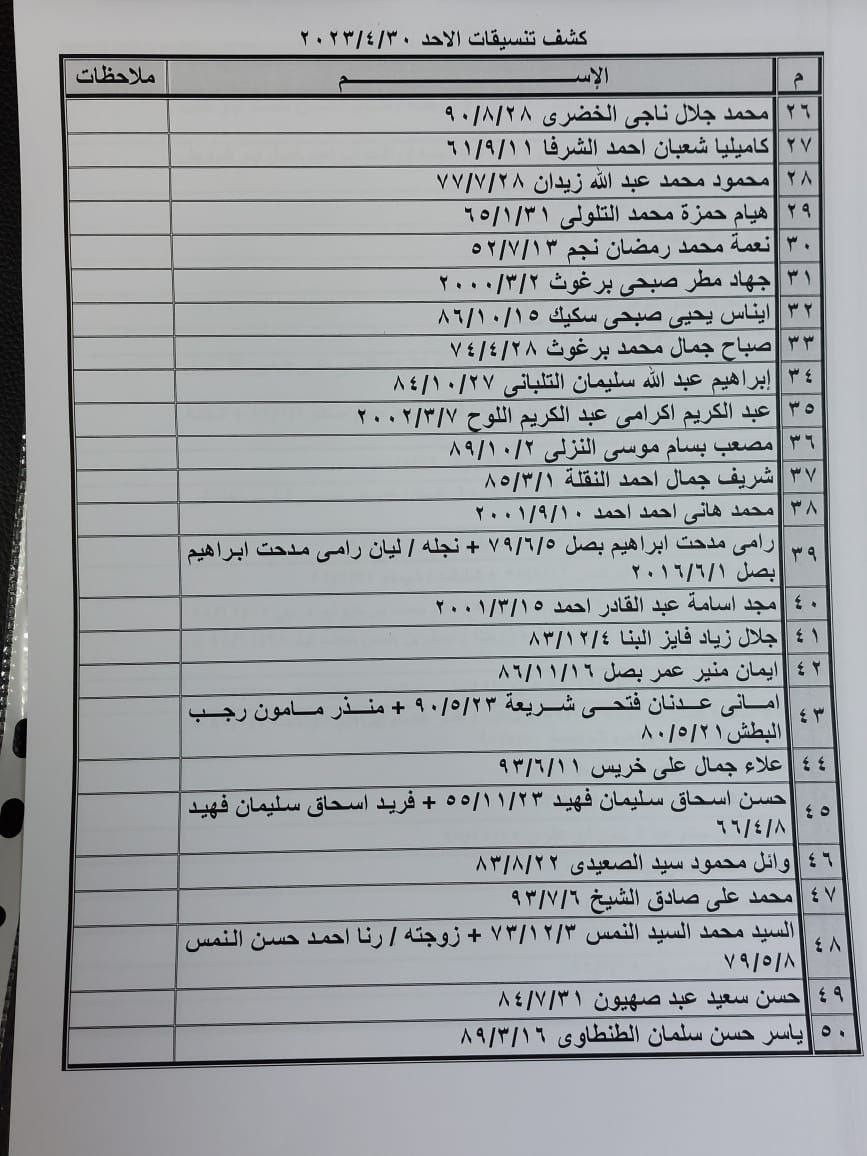 كشف تنسيقات الاحد ٢٠٢٣/٤/٣٠
م الإســــــــم ملاحظات
٢٦ محمد جلال ناجى الخضرى ٩٠/٨/٢٨
٢٧ كاميليا شعبان احمد الشرفا ٦١/٩/١١
٢٨ محمود محمد عبد الله زيدان ٧٧/٧/٢٨
٢٩ هيام حمزة محمد التلولى ٦٥/١/٣١
٣٠ نعمة محمد رمضان نجم ٥٢/٧/١٣
٣١ جهاد مطر صبحى برغوث ٢٠٠٠/٣/٢
٣٢ ايناس يحيى صبحى سكيك ٨٦/١٠/١٥
٣٣ صباح جمال محمد برغوث ٧٤/٤/٢٨
٣٤ إبراهيم عبد الله سليمان التلبانى ٨٤/١٠/٢٧
٣٥ عبد الكريم اكرامى عبد الكريم اللوح ٢٠٠٢/٣/٧
٣٦ مصعب بسام موسى النزلى ٨٩/١٠/٢
٣٧ شريف جمال احمد النقلة ٨٥/٣/١
٣٨ محمد هانى احمد احمد ٢٠٠١/٩/١٠
٣٩ رامى مدحت ابراهيم بصل ٧٩/٦/٥ + نجله / ليان رامى مدحت ابراهيم
بصل ٢٠١٦/٦/١
٤٠ مجد اسامة عبد القادر احمد ٢٠٠١/٣/١٥
٤١ جلال زياد فايز البنا ٨٣/١٢/٤
٤٢ ايمان منير عمر بصل ٨٦/١١/١٦
٤٣ امـانى عـدنان فتحـى شـريعة ٩٠/٥/٢٣ + منـذر مـامون رجـب
البطش ٨٠/٥/٢١
٤٤ علاء جمال على خريس ٩٣/٦/١١
٤٥ حسن اسحاق سليمان فهيد ٥٥/١١/٢٣ + فريد اسحاق سليمان فهيد
٦٦/٤/٨
٤٦ وائل محمود سيد الصعيدى ٨٣/٨/٢٢
٤٧ محمد على صادق الشيخ ٩٣/٧/٦
٤٨ السيد محمد السيد النمس ٧٣/١٢/٣ + زوجته / رنا احمد حسن النمس
٧٩/٥/٨
٤٩ حسن سعيد عبد صهيون ٨٤/٧/٣١
٥٠ ياسر حسن سلمان الطنطاوى ٨٩/٣/١٦